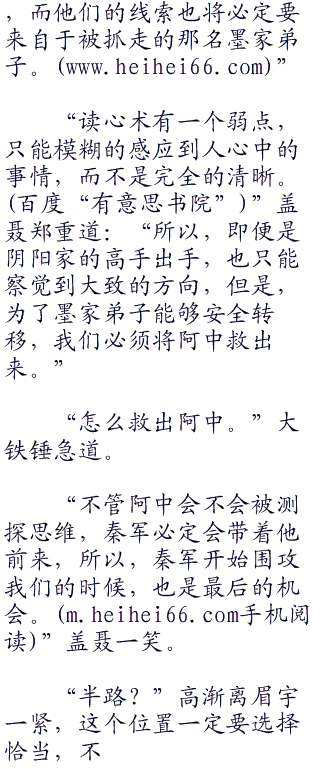 ，而他们的线索也将必定要
来自于被抓走的那名墨家弟
子。(www.heihei66.com)”
“读心术有一个弱点，
只能模糊的感应到人心中的
事情，而不是完全的清晰。
(百度“有意思书院”)”盖
聂郑重道：“所以，即便是
阴阳家的高手出手，也只能
察觉到大致的方向，但是，
为了墨家弟子能够安全转
移，我们必须将阿中救出
来。”
“怎么救出阿中。”大
铁锤急道。
“不管阿中会不会被测
探思维，秦军必定会带着他
前来，所以，秦军开始围攻
我们的时候，也是最后的机
会。(m.heihei66.com手机阅
读)”盖聂一笑。
“半路？”高渐离眉宇
一紧，这个位置一定要选择
恰当，不